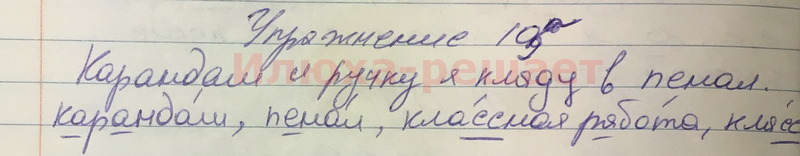 Упражнение 109
Карандаш и ручку я кладу в пенал.
карандаш, пенал, классная работа, класс
Илюха-решает